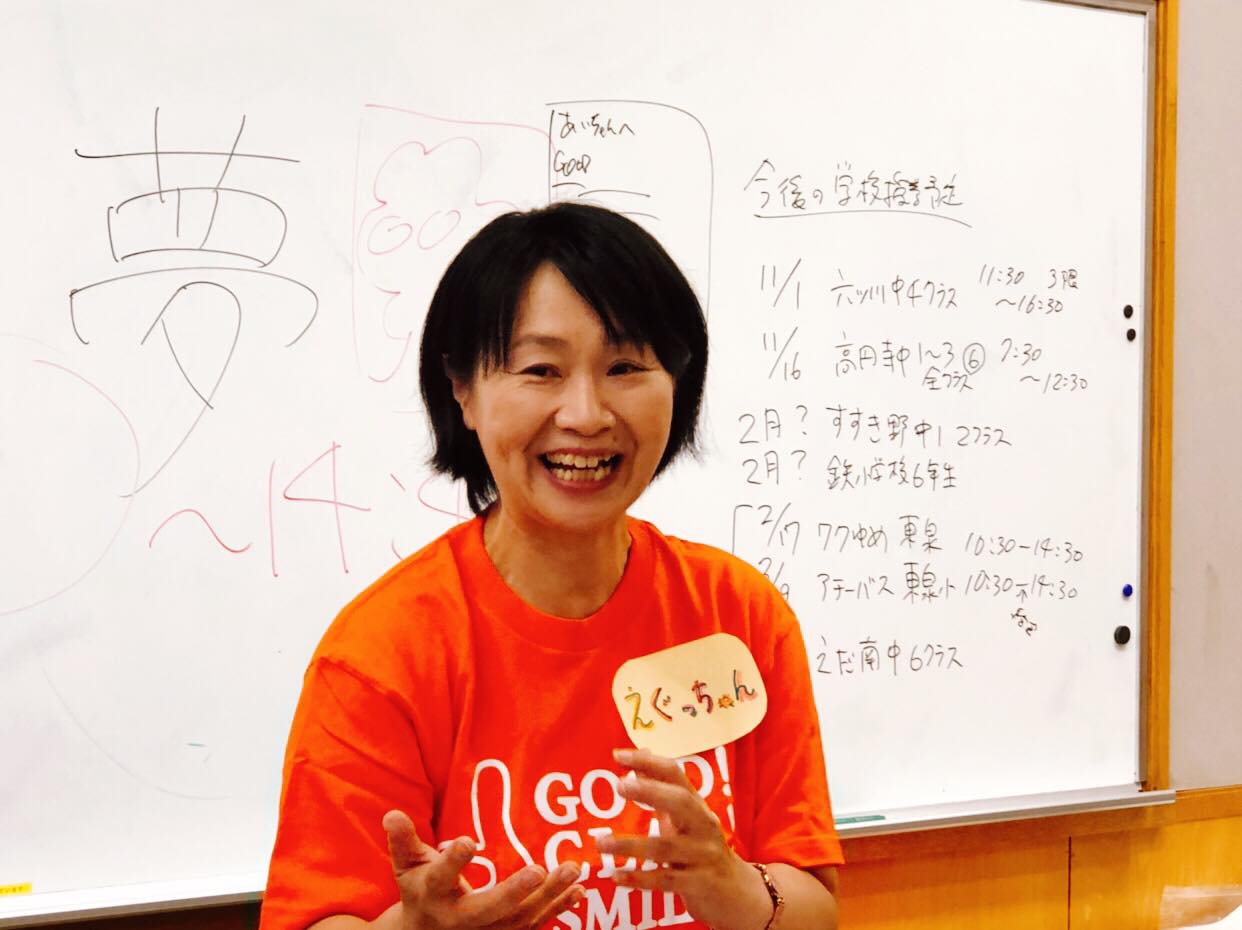 夢
～14:4
あいちゃんへ
GOOD
今後の学校授業予定
11/1 六ッ川中4クラス 11:30 3限
～16:30
11/16 高円寺中1～3 ⑥ 7:30
全クラス ～12:30
2月? すすき野中1 2クラス
2月? 鉄小学校6年生
2/17 ワクゆめ 東泉 10:30-14:30
アチーバス 東泉小 10:30 14:30
えだ南中6クラス
えぐっちゃん
GOOD!
CLA
SMIL